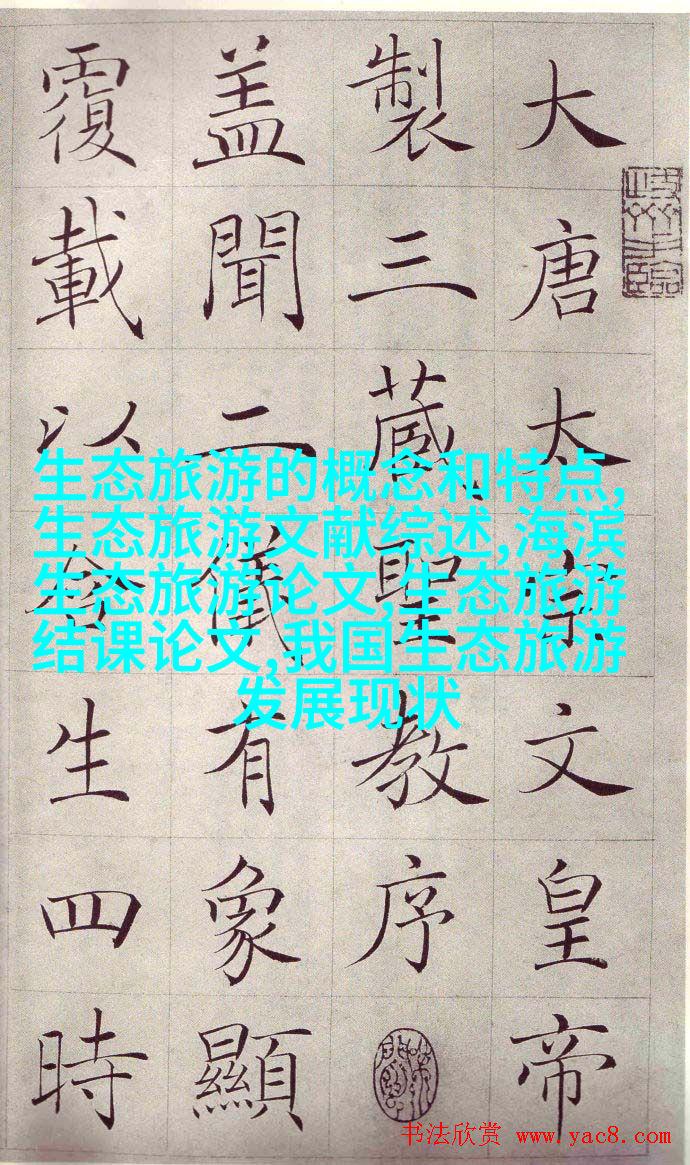 大唐太宗文皇帝
製三蔵聖教序
盖聞二儀有象顯
覆載以含生四時
生态旅游的概念和特点,
生态旅游文献综述,海滨
生态旅游论文,生态旅游
结课论文,我国生态旅游
发展现状
书法欣赏 www.yac8.com